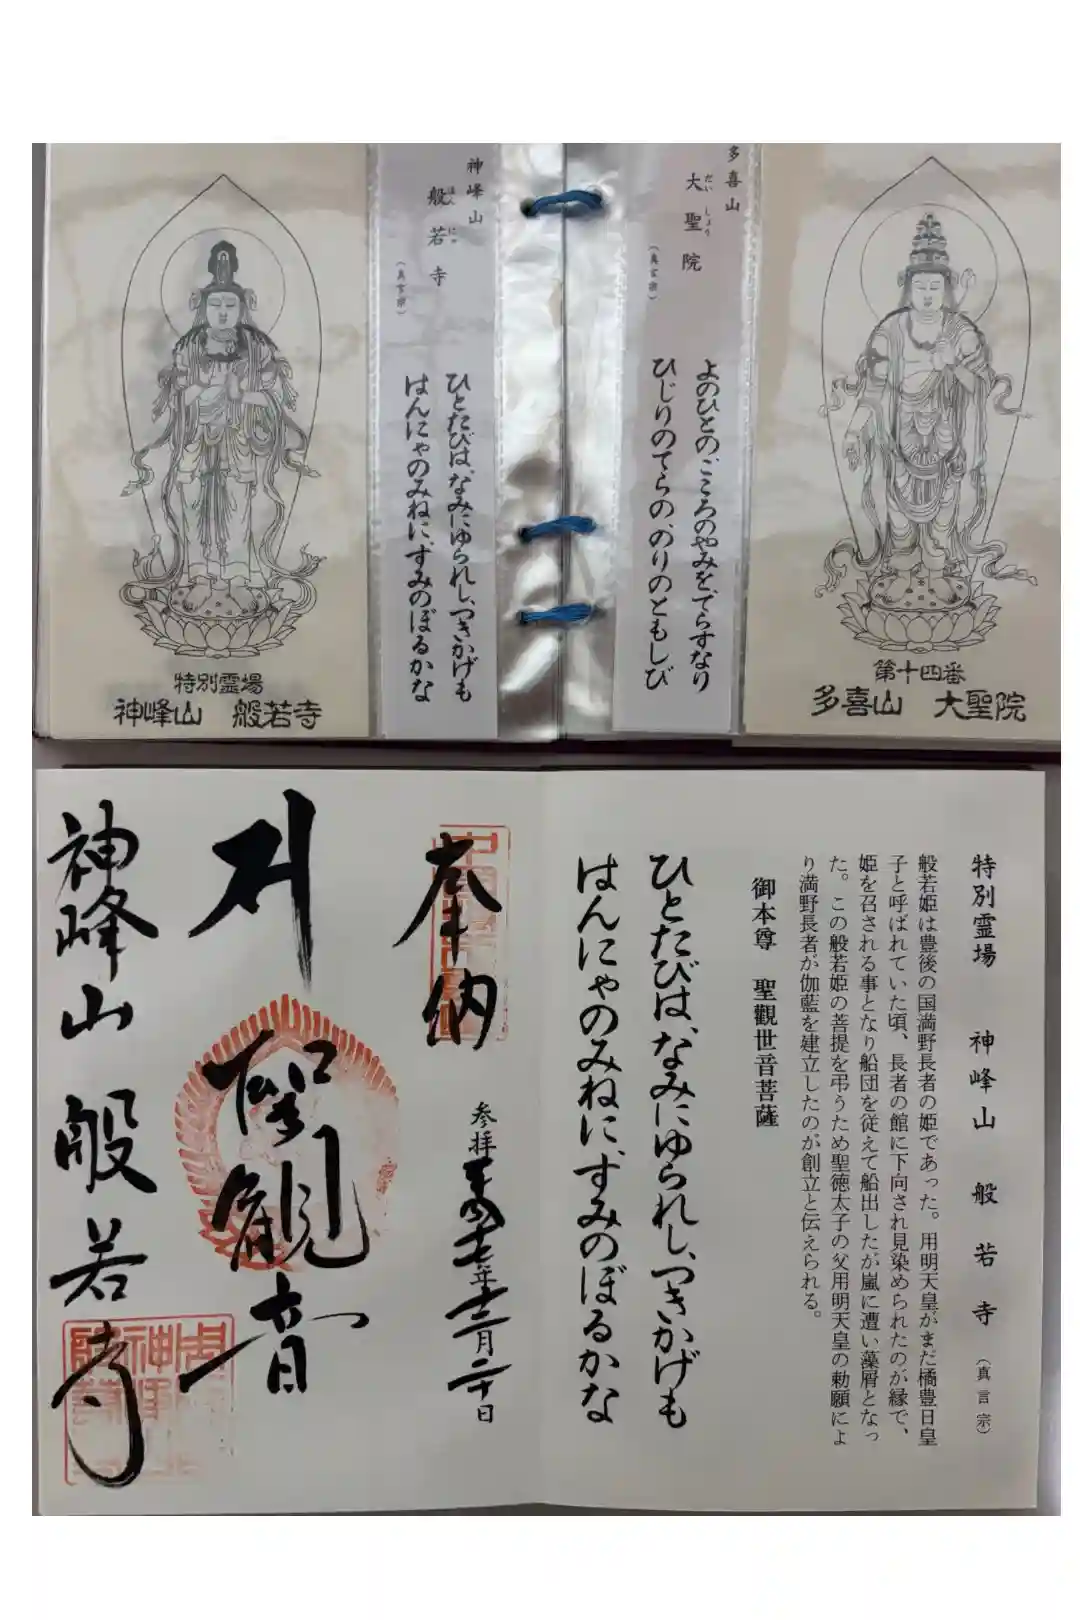 多喜山
大聖院
だいしょう
（真言宗）
よのひとのこころのやみをてらすなり
ひじりのてらの、のりのともしび
第十四番
多喜山　大聖院
神峰山
般若寺
はんにゃ
（真言宗）
ひとたびは、なみにゆられし、つきかげも
はんにゃのみねに、すみのぼるかな
特別霊場
神峰山　般若寺
特別霊場　神峰山　般若寺（真言宗）
般若姫は豊後の国満野長者の姫であった。用明天皇がまだ橘豊日皇
子と呼ばれていた頃、長者の館に下向され見染められたのが縁で、
姫を召される事となり船団を従えて船出したが嵐に遭い藻屑となっ
た。この般若姫の菩提を弔うため聖徳太子の父用明天皇の勅願によ
り満野長者が伽藍を建立したのが創立と伝えられる。
御本尊　聖觀世音菩薩
ひとたびは、なみにゆられし、つきかげも
はんにゃのみねに、すみのぼるかな
奉納
参拝 年十二月二十日
聖観音
神峰山般若寺